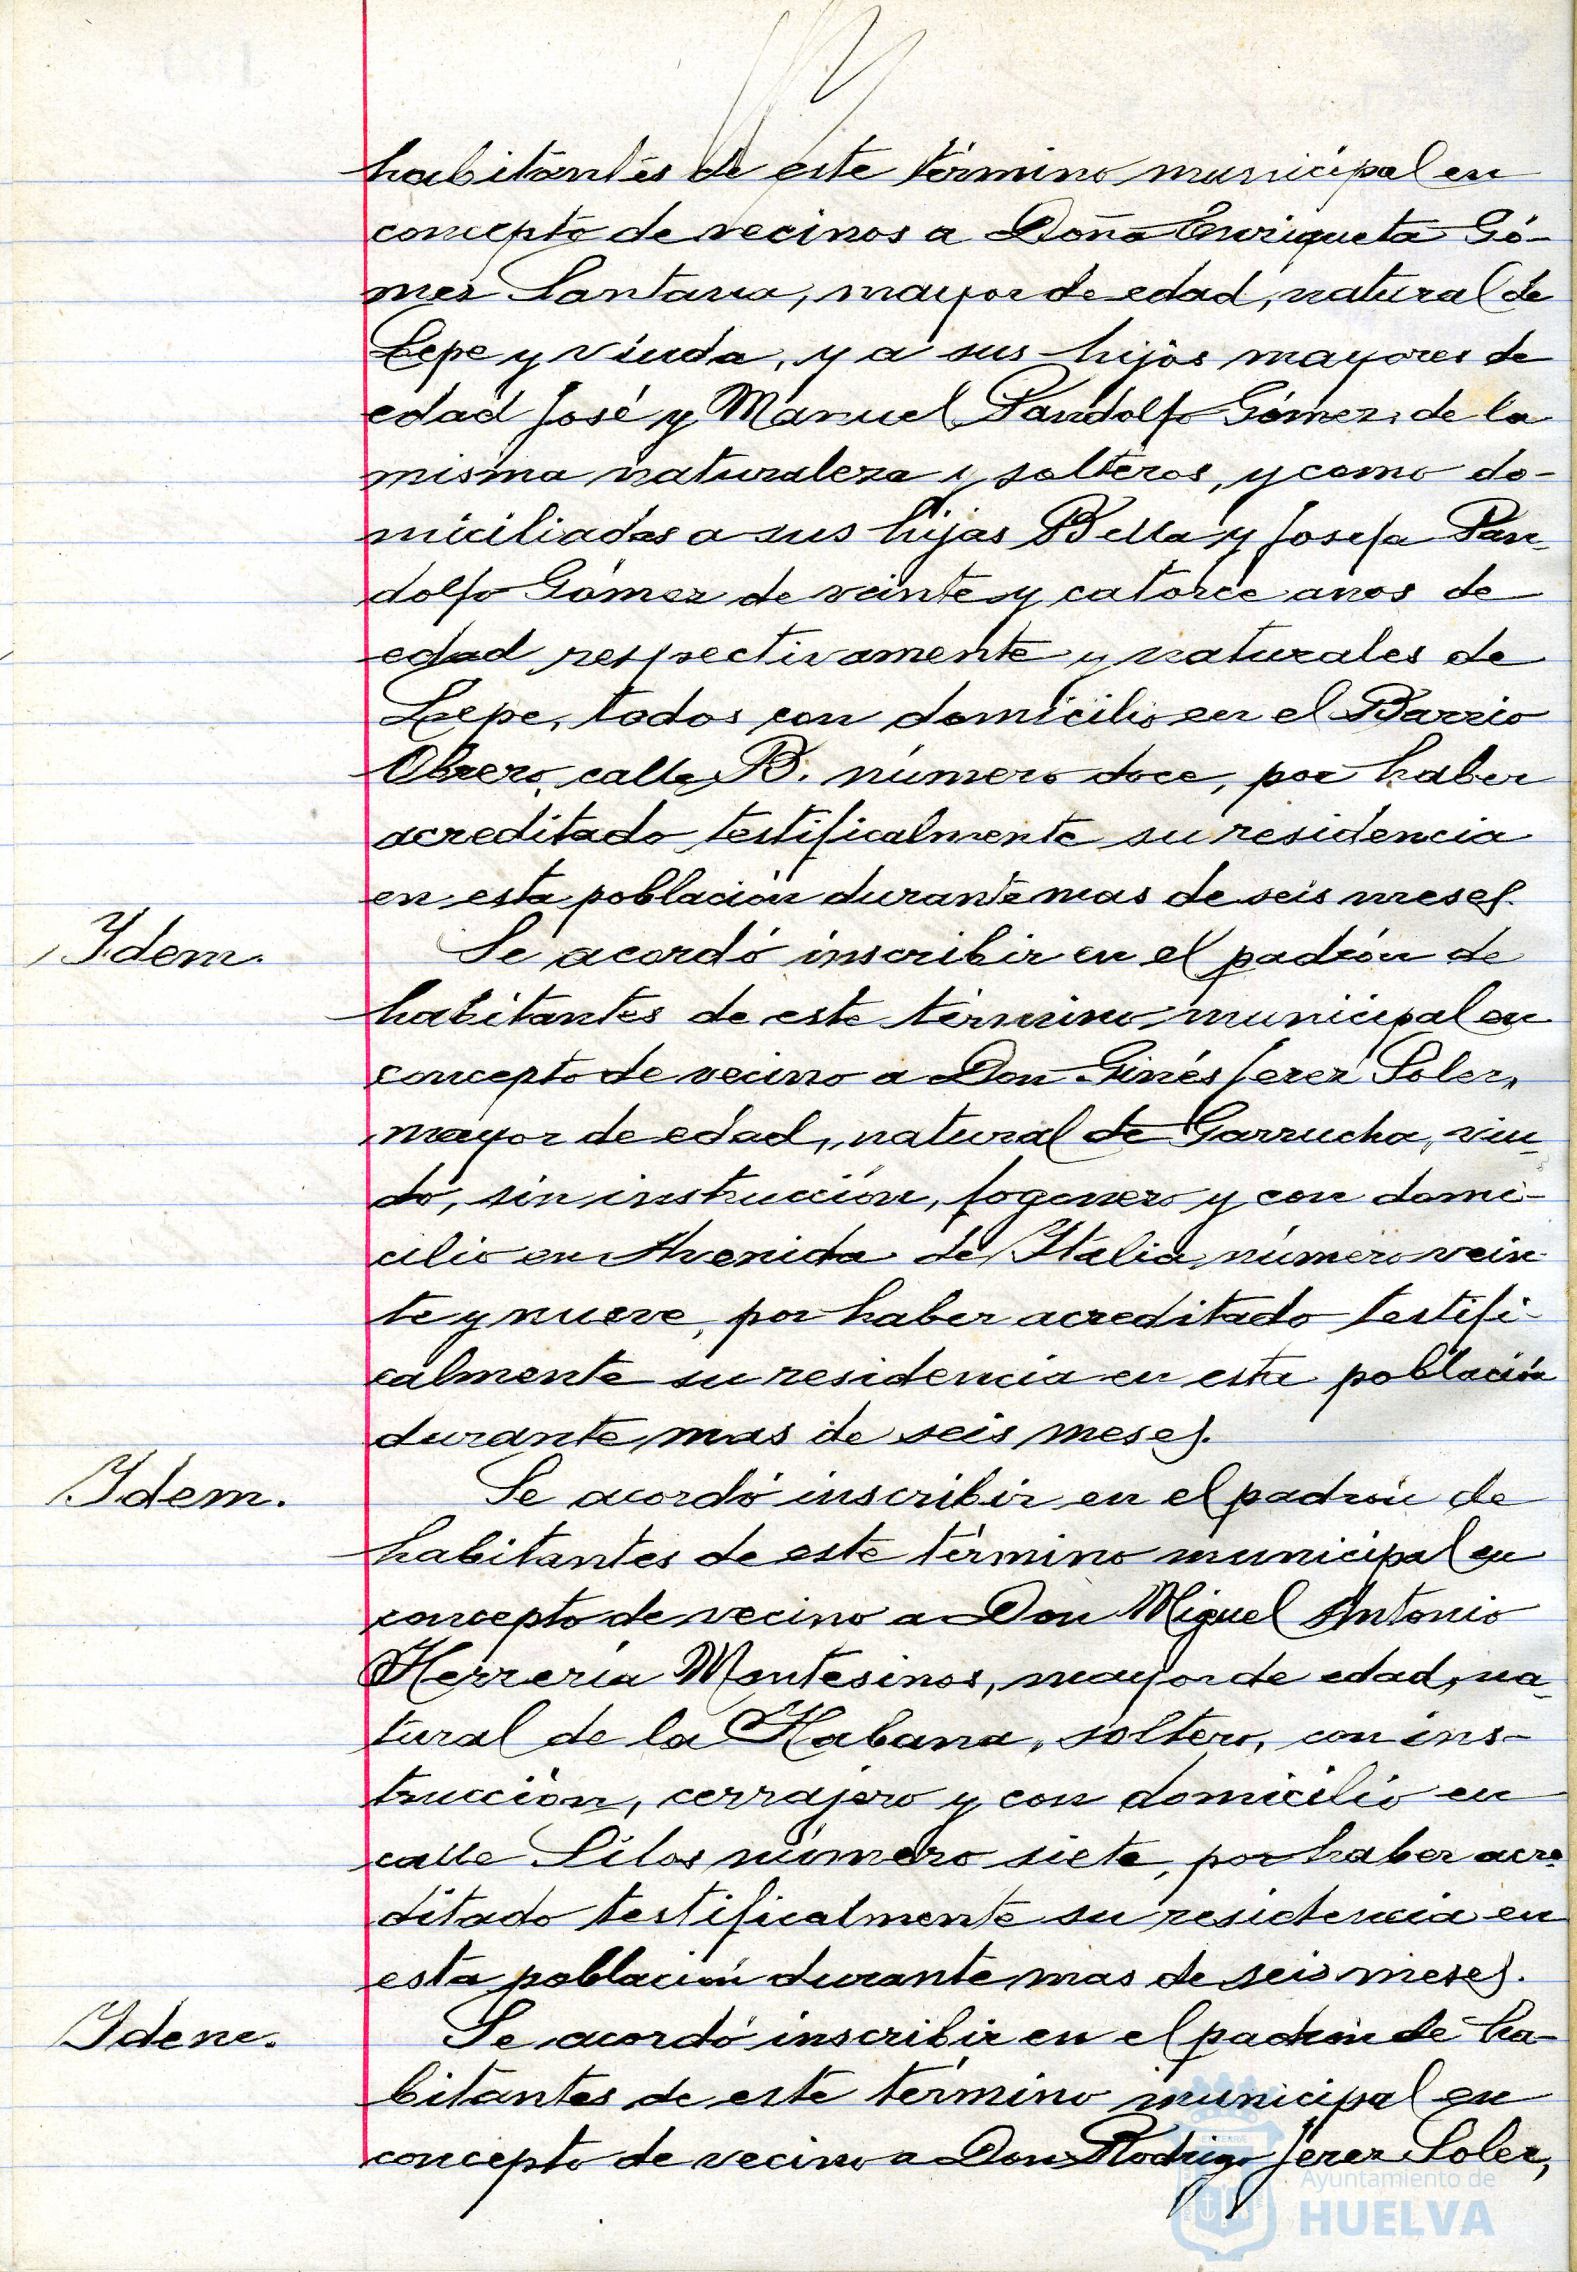 habitantes de este término municipal en
concepto de vecinos a Doña Enriqueta Gó-
mez Santana, mayor de edad, natural de
Lepe y viuda, y a sus hijos mayores de
edad José y Manuel Pandolfo Gómez, de la
misma naturaleza y solteros, y como do-
miciliadas a sus hijas Bella y Josefa Pan-
dolfo Gómez de veinte y catorce anos de
edad respectivamente y naturales de
Lepe, todos con domicilio en el Barrio
Obrero, calle B. número doce, por haber
acreditado testificalmente su residencia
en esta población durante mas de seis meses.
Idem.
Se acordó inscribir en el padrón de
habitantes de este término municipal en
concepto de vecino a Don Ginés Jerez Soler,
mayor de edad, natural de Garrucha, viu-
do, sin instrucción, fogonero y con domi-
cilio en Avenida de Italia, número vein-
te y nueve, por haber acreditado testifi-
calmente su residencia en esta población
durante mas de seis meses.
Idem.
Se acordó inscribir en el padrón de
habitantes de este término municipal en
concepto de vecino a Don Miguel Antonio
Herrería Montesinos, mayor de edad, na-
tural de la Habana, soltero, con ins-
trucción, cerrajero y con domicilio en
calle Silos número siete, por haber acre
ditado testificalmente su residencia en
esta población durante mas de seis meses.
Idem.
Se acordó inscribir en el padrón de ha-
bitantes de este término municipal en
concepto de vecino a Don Rodrigo Jerez Soler,
Ayuntamiento de
HUELVA